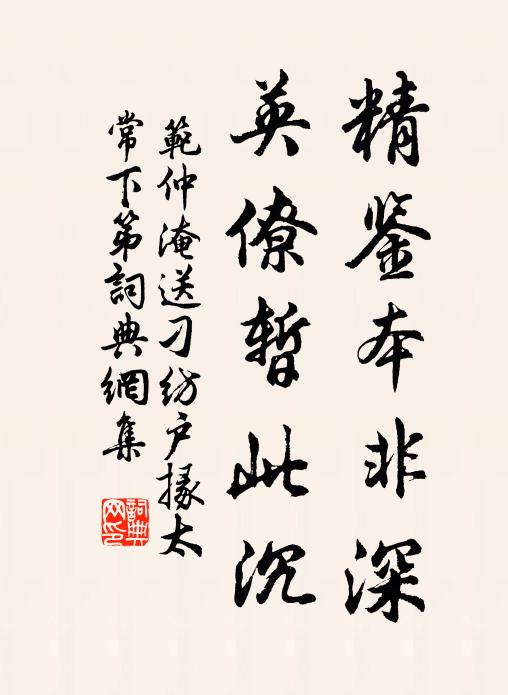 精鉴本非深
英僚暂此沉
範仲淹送刁纺户掾太
常下第詞典網集
詞典网印